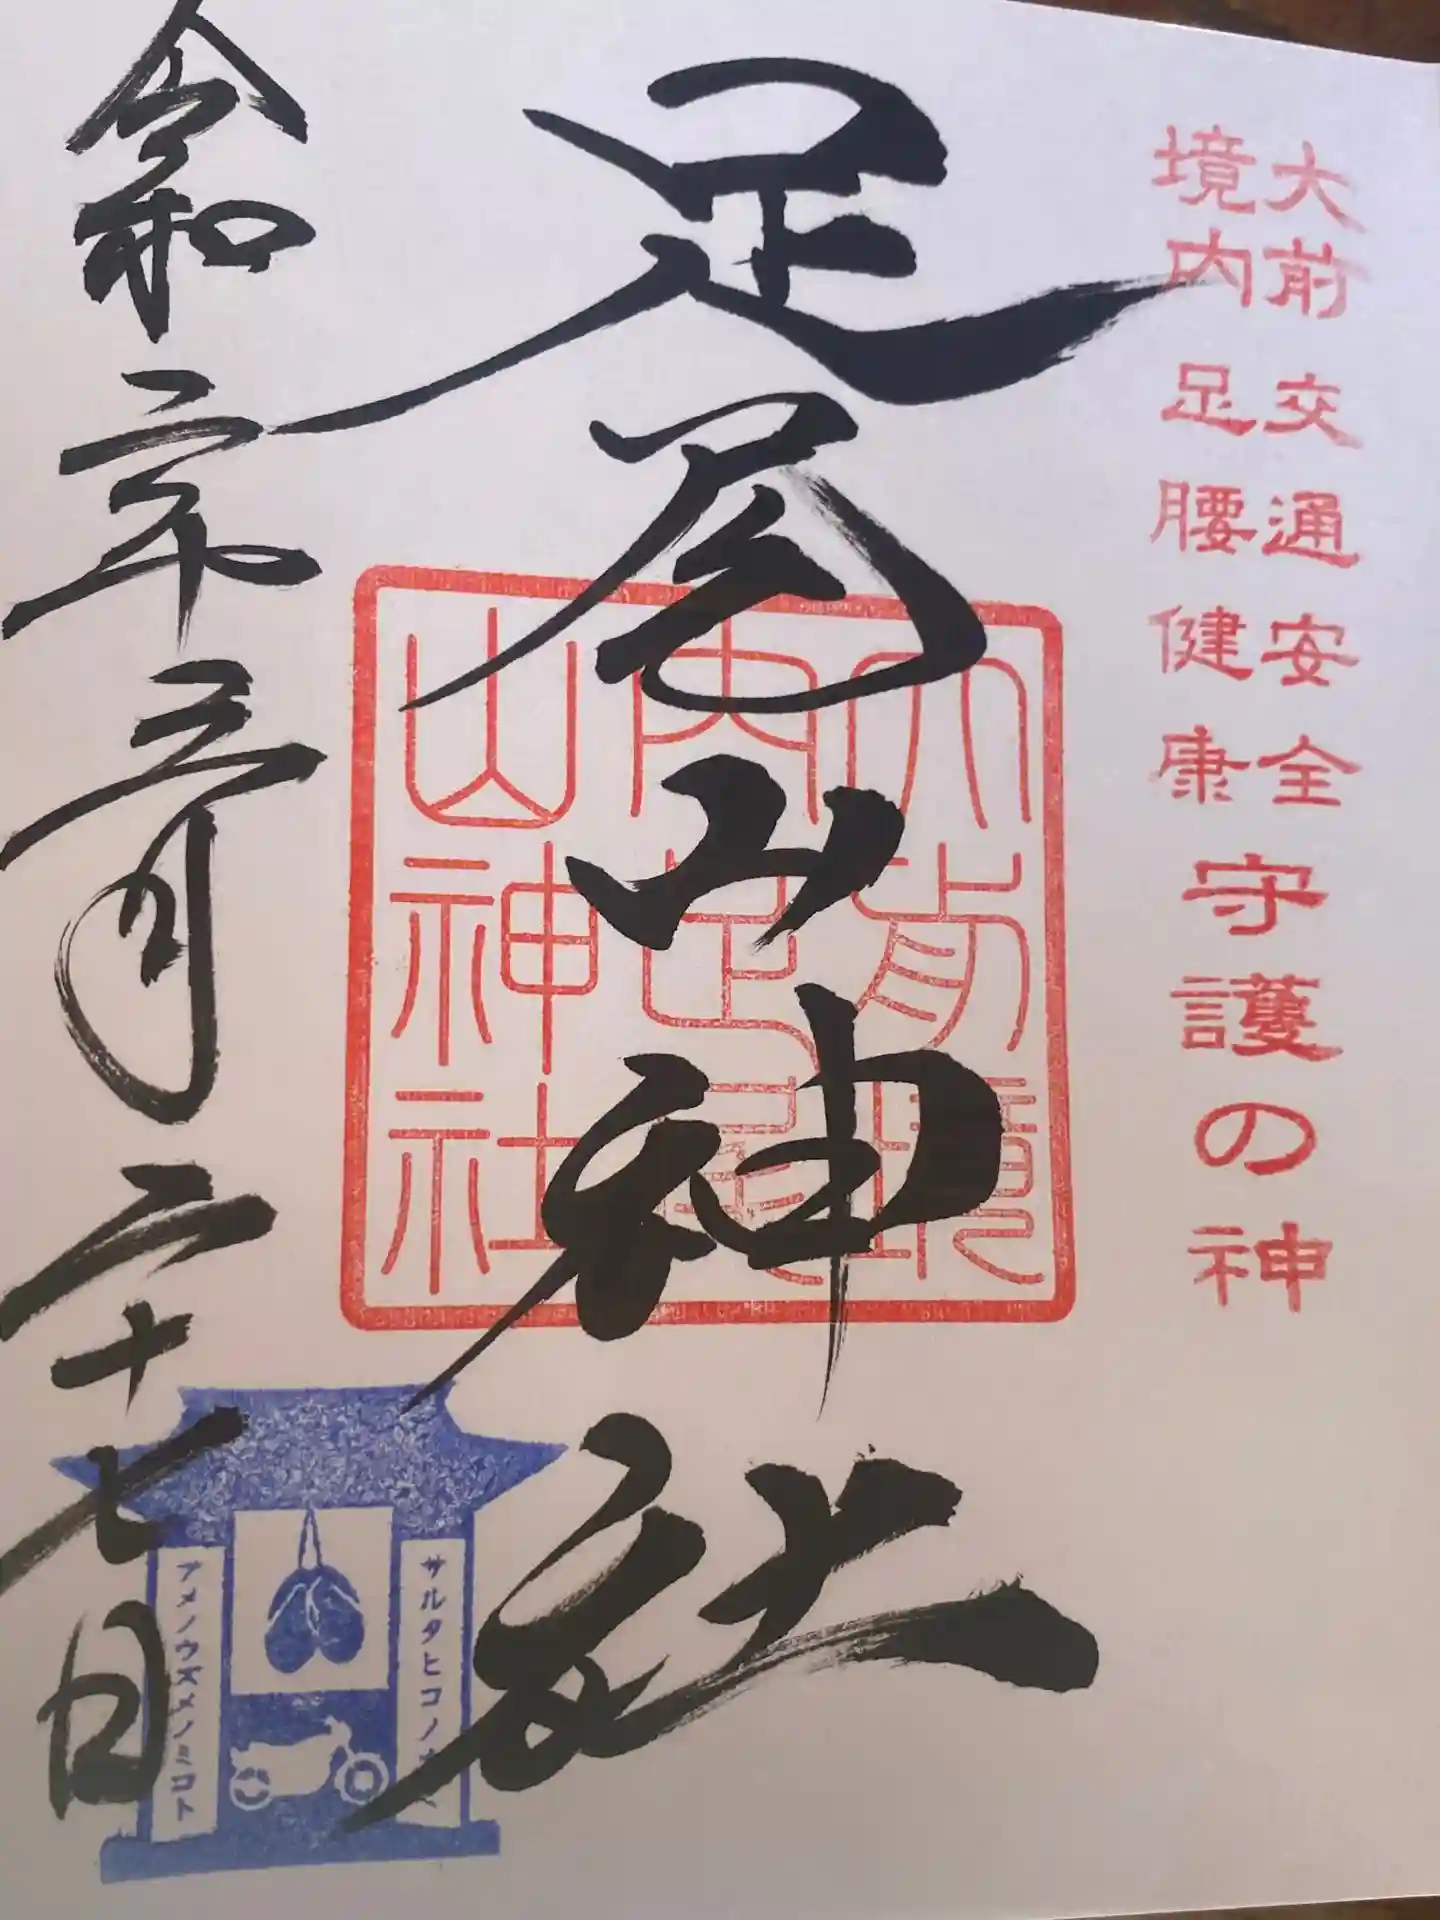 大前 交通安全
境内 足腰健康
守護の神
足尾山神社
大前境
内足尾
山神社
令和二年三月二十七日
サルタヒコノ
アメノウズメノミコト